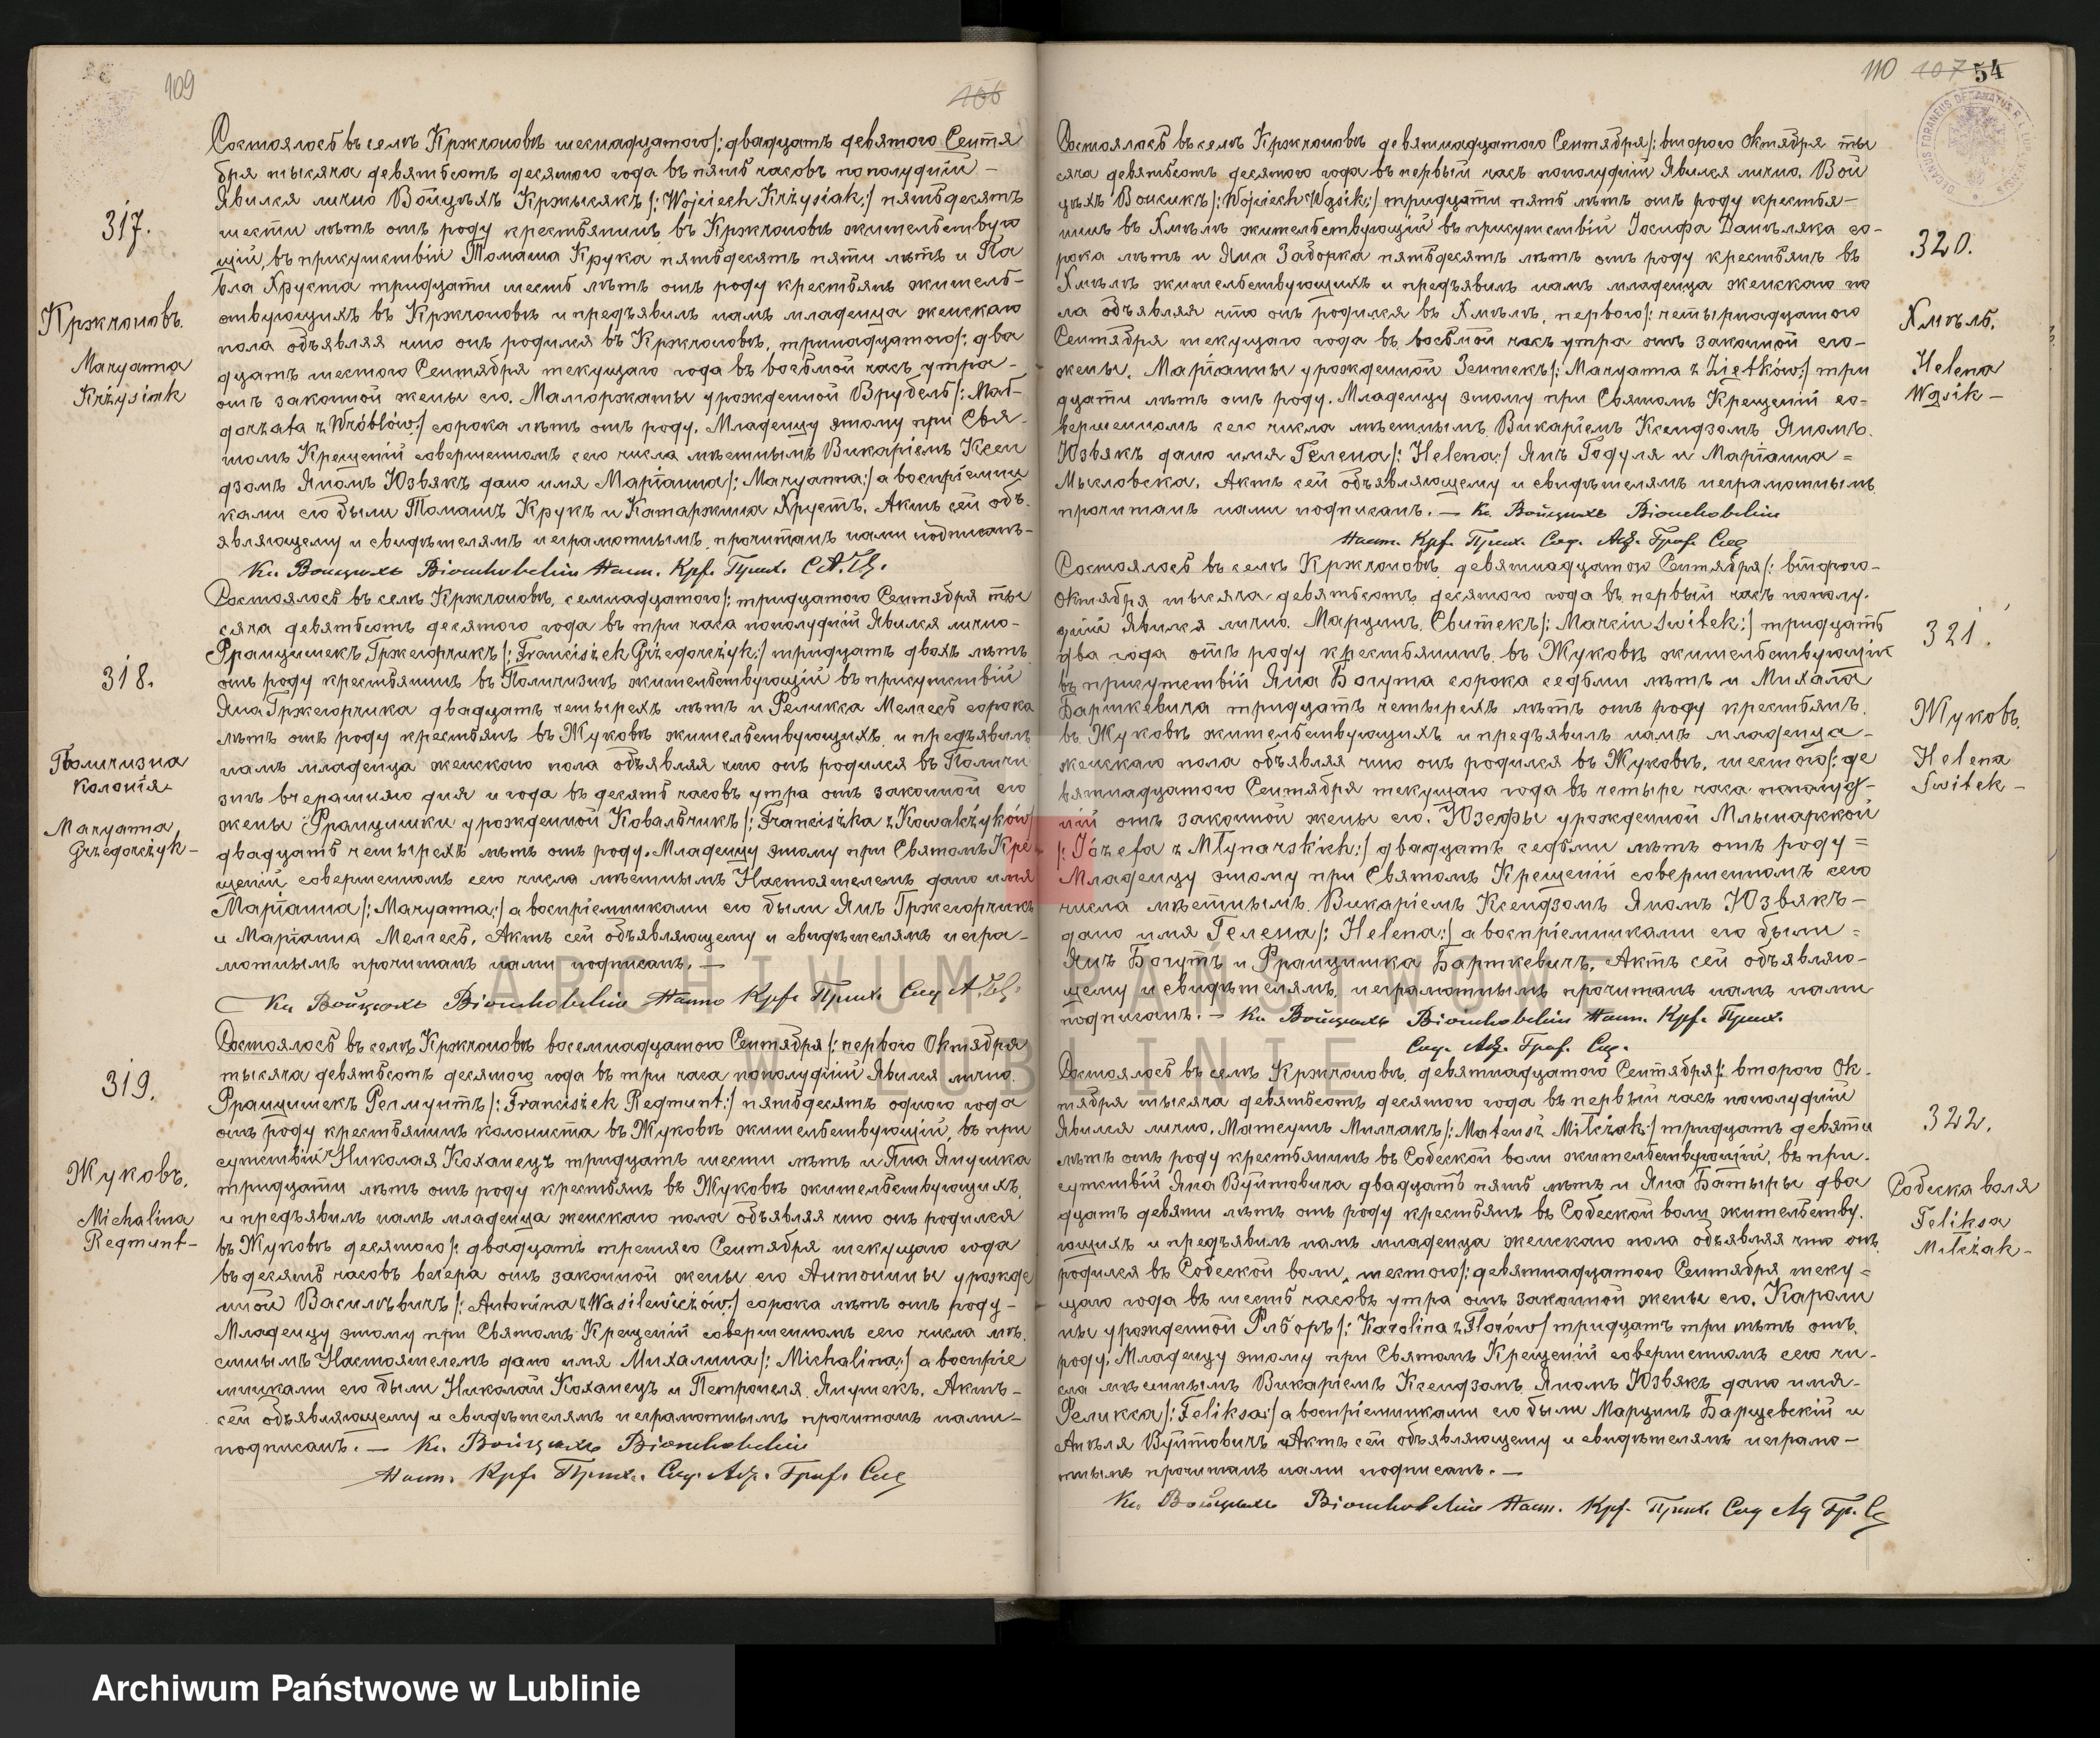 109
106
317.
Кржчоновъ.
Maryanna
Krzysiak
Состоялось въ селѣ Кржчоновѣ шестнадцатого /: двадцать девятого Сентя
бря тысяча девятьсотъ десятого года въ пять часовъ пополудніи –
Явился лично Войцѣхъ Кржысякъ /: Wojciech Krzysiak :/ пятьдесятъ
шести лѣтъ отъ роду крестьянинъ въ Кржчоновѣ жительствую
щій, въ присутствіи Томаша Крука пятьдесятъ пяти лѣтъ и Па
вла Хруста тридцати шесть лѣтъ отъ роду крестьянъ житель-
ствующихъ въ Кржчоновѣ и предъявилъ намъ младенца женскаго
пола объявляя что онъ родился въ Кржчоновѣ, тринадцатого /: два
дцать шестого Сентября текущаго года въ восьмой часъ утра –
отъ законной жены его. Малгоржаты урожденной Врубель /: Mał-
gorzata z Wróblów :/ сорока лѣтъ отъ роду. Младенцу этому при Свя-
томъ Крещеніи совершенномъ сего числа мѣстнымъ Викаріемъ Ксен
дзомъ Яномъ Юзвякъ дано имя Маріанна /: Maryanna :/ а воспріемни
ками его были Томашъ Крукъ и Катаржина Хрустъ. Актъ сей объ
являющему и свидѣтелямъ неграмотнымъ, прочитанъ нами подписанъ –
Кс. Войцѣхъ Наст. Крж. Прих. С.А.Г.
318.
Поличизна
Колонія
Maryanna
Grzegorczyk –
Состоялось въ селѣ Кржчоновѣ, семнадцатого /: тридцатого Сентября ты
сяча девятьсотъ десятого года въ три часа пополудніи Явился лично –
Францишекъ Гржегорчикъ /: Franciszek Grzegorczyk :/ тридцать двохъ лѣтъ
отъ роду крестьянинъ въ Поличизнѣ жительствующій въ присутствіи
Яна Гржегорчика двадцать четырехъ лѣтъ и Феликса Мелгесь сорока
лѣтъ отъ роду крестьянъ въ Жуковѣ жительствующихъ, и предъявилъ
намъ младенца женскаго пола объявляя что онъ родился въ Поличи
знѣ вчерашняго дня и года въ десять часовъ утра отъ законной его
жены Францишки урожденной Ковальчикъ /: Franciszka z Kowalczyków /
двадцать четырехъ лѣтъ отъ роду. Младенцу этому при Святомъ Кре
щеніи совершенномъ сего числа мѣстнымъ Настоятелемъ дано имя
Маріанна /: Maryanna :/ а воспріемниками его были Янъ Гржегорчикъ
и Маріанна Мелгесь. Актъ сей объявляющему и свидѣтелямъ негра-
мотнымъ прочитанъ нами подписанъ. –
Кс. Войцѣхъ Наст. Крж. Прих. Сод. А.Г.
319.
Жуковъ.
Michalina
Regmunt –
Состоялось въ селѣ Кржчоновѣ восемнадцатого Сентября /: первого Октября
тысяча девятьсотъ десятого года въ три часа пополудніи Явился лично.
Францишекъ Регмунтъ /: Franciszek Regmunt :/ пятьдесятъ одного года
отъ роду крестьянинъ колониста въ Жуковѣ жительствующій, въ при
сутствіи Николая Коханецъ тридцать шести лѣтъ и Яна Янушка
тридцати лѣтъ отъ роду крестьянъ въ Жуковѣ жительствующихъ,
и предъявилъ намъ младенца женскаго пола объявляя что онъ родился
въ Жуковѣ десятого /: двадцать третяго Сентября текущаго года
въ десять часовъ вечера отъ законной жены его Антонины урожде
нной Василевичъ /: Antonina z Wasilewiczów :/ сорока лѣтъ отъ роду –
Младенцу этому при Святомъ Крещеніи совершенномъ сего числа мѣ
стнымъ Настоятелемъ дано имя Михалина /: Michalina :/ а воспріе
мниками его были Николай Коханецъ и Петронеля Янушекъ. Актъ –
сей объявляющему и свидѣтелямъ неграмотнымъ прочитанъ нами –
подписанъ. – Кс. Войцѣхъ
Наст. Крж. Прих. Сод. Акт. Граж. Сос
110 107 54
DECANUS FORANEUS DECANATUS
320.
Хмѣль.
Helena
Wąsik –
Состоялось въ селѣ Кржчоновѣ девятнадцатого Сентября /: второго Октября ты
сяча девятьсотъ десятого года въ первый часъ пополудніи Явился лично. Вой
цѣхъ Вонсикъ /: Wojciech Wąsik :/ тридцати пять лѣтъ отъ роду крестья –
нинъ въ Хмѣлѣ жительствующій въ присутствіи Іосифа Данѣляка со-
рока лѣтъ и Яна Заборка пятьдесятъ лѣтъ отъ роду крестьянъ въ
Хмѣлѣ жительствующихъ и предъявилъ намъ младенца женскаго по
ла объявляя что онъ родился въ Хмѣлѣ, первого /: четырнадцатого
Сентября текущаго года въ восьмой часъ утра отъ законной его –
жены. Маріанны урожденной Зентекъ /: Maryanna z Ziętków :/ три
дцати лѣтъ отъ роду. Младенцу этому при Святомъ Крещеніи со-
вершенномъ сего числа мѣстнымъ Викаріемъ Ксендзомъ Яномъ.
Юзвякъ дано имя Гелена /: Helena :/ Янъ Годуля и Маріанна =
Мысловска. Актъ сей объявляющему и свидѣтелямъ неграмотнымъ
прочитанъ нами подписанъ. – Кс. Войцѣхъ
Наст. Крж. Прих. Сод. Акт. Граж. Сос
321.
Жуковъ.
Helena
Świtek –
Состоялось въ селѣ Кржчоновѣ девятнадцатого Сентября /: второго –
Октября тысяча девятьсотъ десятого года въ первый часъ пополу.
дніи Явился лично. Марцинъ Свитекъ /: Marcin Switek :/ тридцать
два года отъ роду крестьянинъ въ Жуковѣ жительствующій
въ присутствіи Яна Богута сорока седьми лѣтъ и Михала
Барткевича тридцать четырехъ лѣтъ отъ роду крестьянъ.
въ Жуковѣ жительствующихъ и предъявилъ намъ младенца –
женскаго пола объявляя что онъ родился въ Жуковѣ, шестого /: де
вятнадцатого Сентября текущаго года въ четыре часа пополуд –
ніи отъ законной жены его. Юзефы урожденной Млынарской
/: Józefa z Młynarskich :/ двадцать седьми лѣтъ отъ роду =
Младенцу этому при Святомъ Крещеніи совершенномъ сего
числа мѣстнымъ Викаріемъ Ксендзомъ Яномъ Юзвякъ –
дано имя Гелена /: Helena :/ а воспріемниками его были =
Янъ Богутъ и Францишка Барткевичъ. Актъ сей объявляю-
щему и свидѣтелямъ, неграмотнымъ прочитанъ намъ нами
подписанъ. – Кс. Войцѣхъ Наст. Крж. Прих.
Сод. Акт. Граж. Сос.
322.
Собеска воля
Feliksa
Milczak –
Состоялось въ селѣ Кржчоновѣ девятнадцатого Сентября /: второго Ок-
тября тысяча девятьсотъ десятого года въ первый часъ пополудніи
Явился лично. Матеушъ Милчакъ /: Mateusz Milczak :/ тридцать девяти
лѣтъ отъ роду крестьянинъ въ Собеской воли жительствующій, въ при.
сутствіи Яна Вуйтовича двадцать пять лѣтъ и Яна Батыры два
дцать девяти лѣтъ отъ роду крестьянъ въ Собеской воли жительству.
ющихъ и предъявилъ намъ младенца женскаго пола объявляя что онъ
родился въ Собеской воли, шестого /: девятнадцатого Сентября теку =
щаго года въ шесть часовъ утра отъ законной жены его. Кароли
ны урожденной Флёоръ /: Karolina z Florów / тридцать три лѣтъ отъ
роду. Младенцу этому при Святомъ Крещеніи совершенномъ сего чи-
сла мѣстнымъ Викаріемъ Ксендзомъ Яномъ Юзвякъ дано имя –
Феликса /: Feliksa :/ а воспріемниками его были Марцинъ Барщевскій и
Анѣля Вуйтовичъ Актъ сей объявляющему и свидѣтелямъ неграмо –
тнымъ прочитанъ нами подписанъ. –
Кс. Войцѣхъ Наст. Крж. Прих. Сод Ак Гр. С
ARCHIWUM PAŃSTWOWE
W LUBLINIE
Archiwum Państwowe w Lublinie